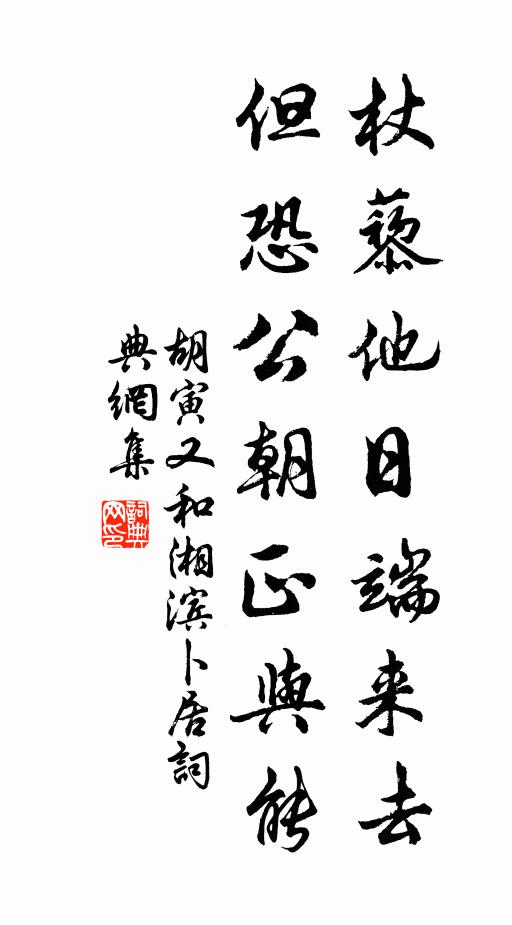 杖藜他日端来去
但恐公朝正與能
胡寅又和湘滨卜居詞
典網集
詞典
网印